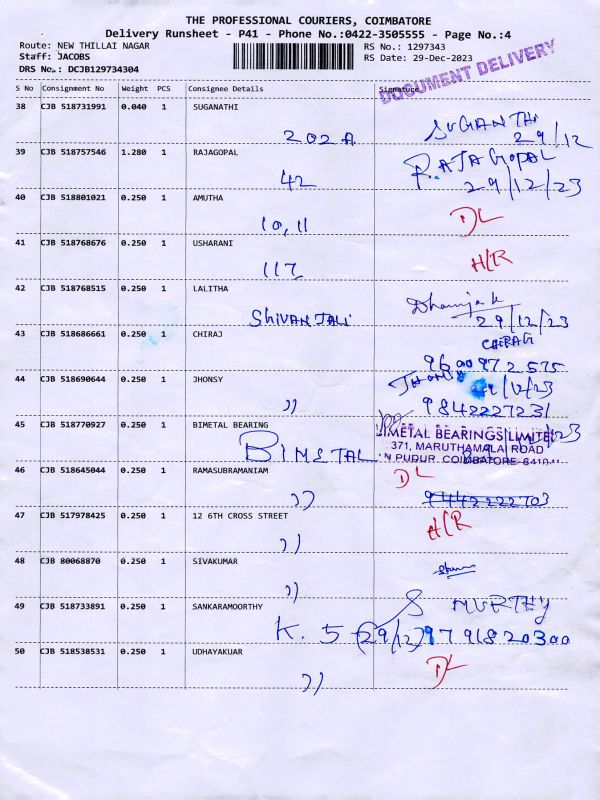 THE PROFESSIONAL COURIERS, COIMBATORE
Delivery Runsheet - P41 - Phone No.:0422-3505555 - Page No.:4
Route: NEW THILLAI NAGAR
RS No.: 1297343
Staff: JACOBS
RS Date: 29-Dec-2023
DRS No.: DCJB129734304
DOCUMENT DELIVERY
S No Consignment No Weight PCS Consignee Details Signature
38 CJB 518731991 0.040 1 SUGANATHI
202A SUGANTHI 29/12
39 CJB 518757546 1.280 1 RAJAGOPAL
42 RAJAGOPAL 29/12/23
40 CJB 518801021 0.250 1 AMUTHA
10, 11 DL
41 CJB 518768676 0.250 1 USHARANI
117 H/R
42 CJB 518768515 0.250 1 LALITHA
ShivanJali 29/12/23
43 CJB 518686661 0.250 1 CHIRAJ
CHIRAG
9600972575
44 CJB 518690644 0.250 1 JHONSY
)) 9842227231
45 CJB 518770927 0.250 1 BIMETAL BEARING
BIMETAL BEARINGS LIMITED
371, MARUTHAMALAI ROAD
PUDUR, COIMBATORE
46 CJB 518645044 0.250 1 RAMASUBRAMANIAM
)) DL 9442222703
47 CJB 517978425 0.250 1 12 6TH CROSS STREET
)) H/R
48 CJB 80068870 0.250 1 SIVAKUMAR
))
49 CJB 518733891 0.250 1 SANKARAMOORTHY
S MURTHY
K. 5 (29/12) 9791820300
50 CJB 518538531 0.250 1 UDHAYAKUAR
)) DL